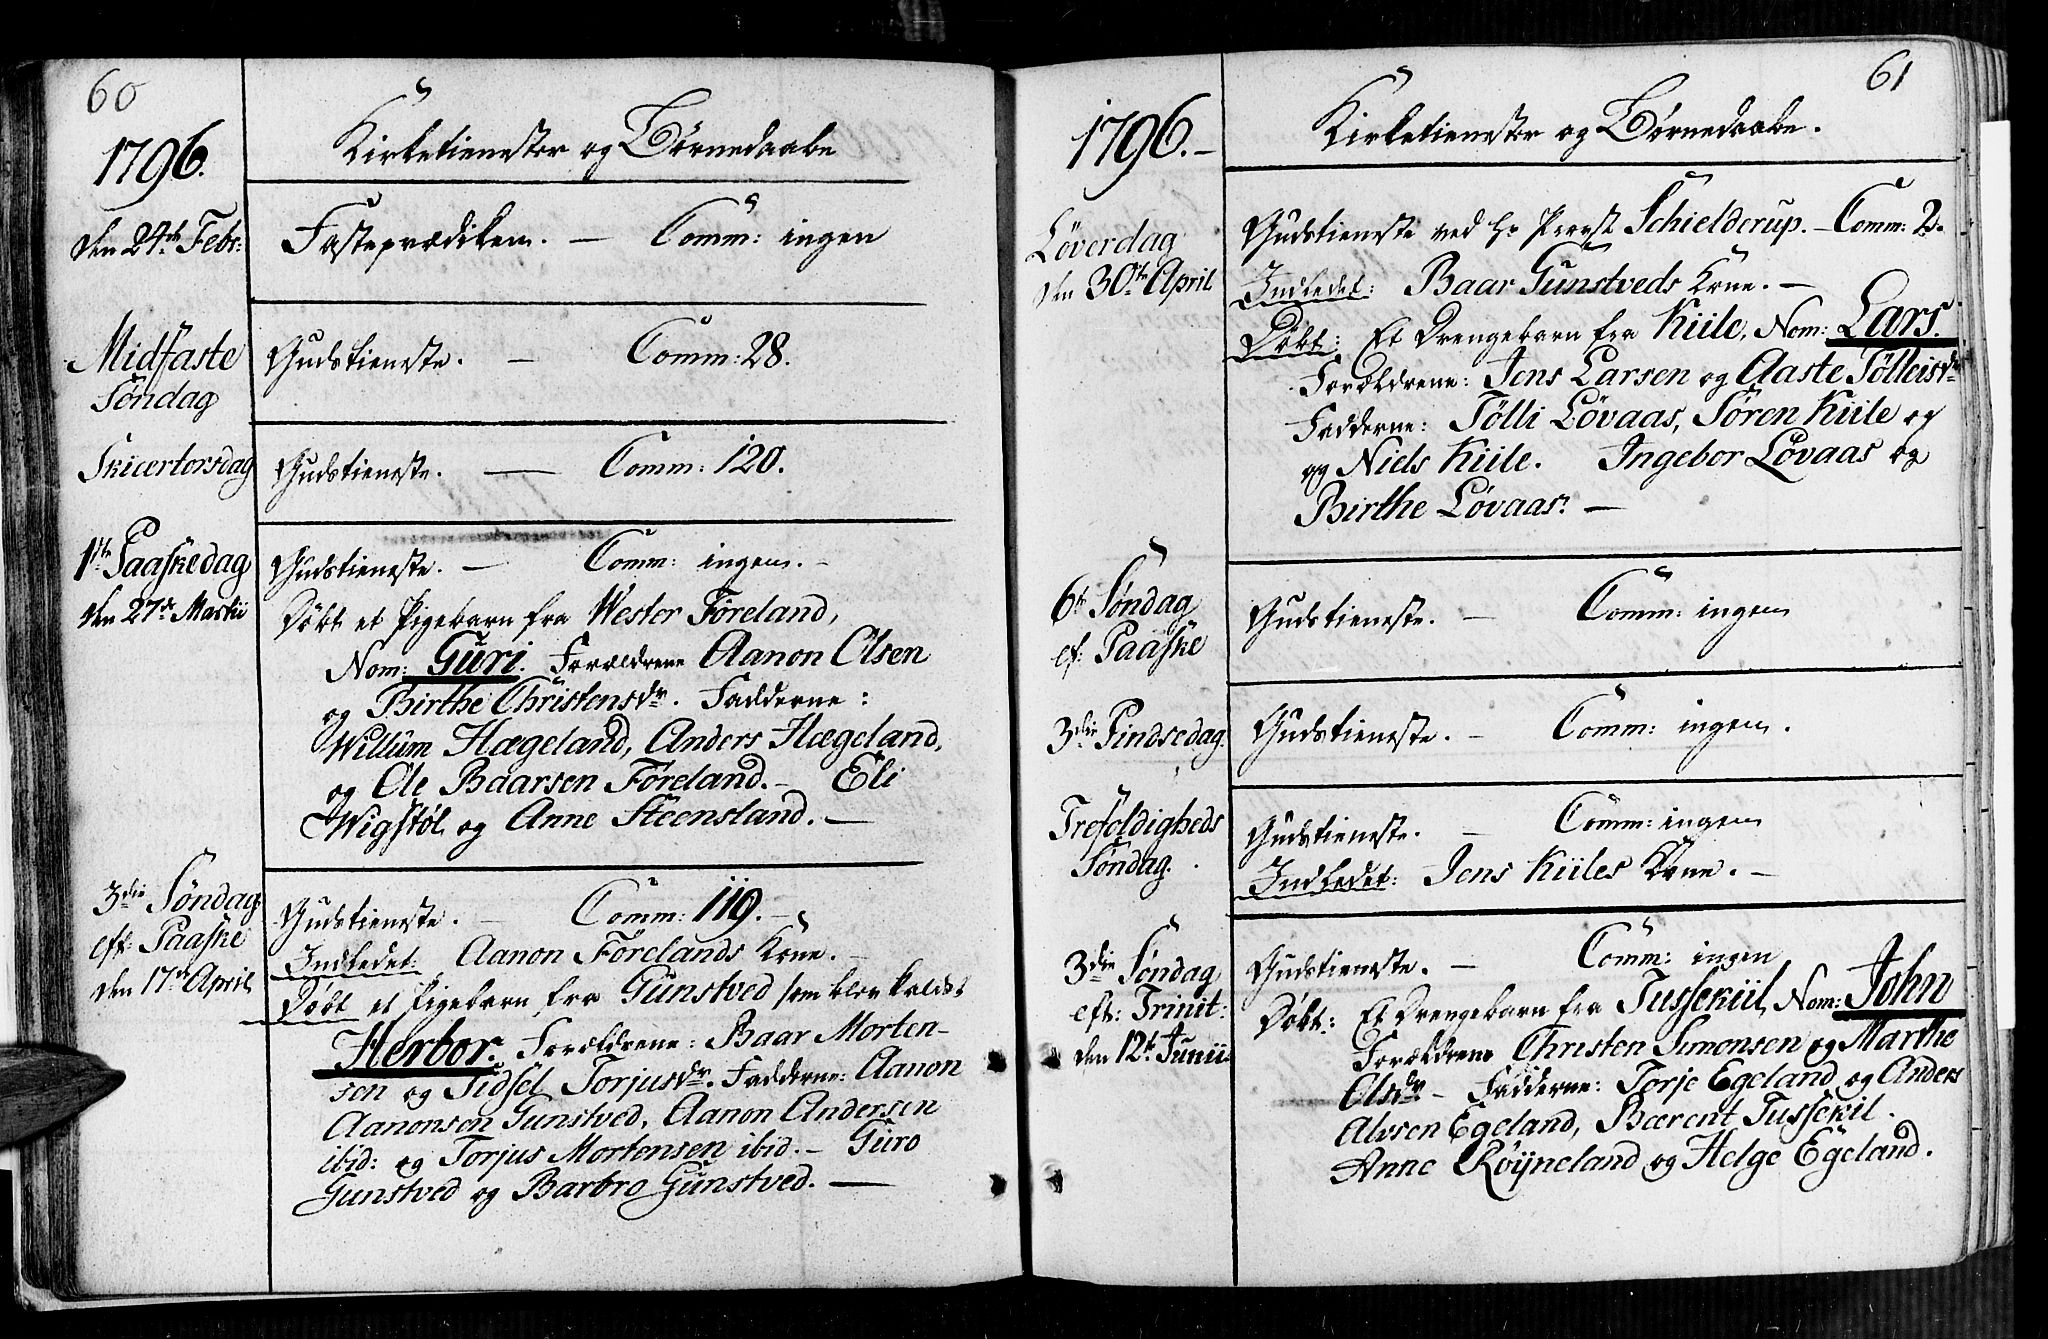 60
1796.
Kirketienester og Børnedaabe
den 24de Febr:
Fasteprædiken. — Comm: ingen
Midfaste
Søndag
Gudstieneste. — Comm: 28.
Skiertorsdag
Gudstieneste. — Comm: 120.
1ste Paaskedag
den 27de Martii
Gudstieneste. — Comm: ingen. -
Døbt et Pigebarn fra Wester Føreland,
Nom: Guri. Forældrene Aanon Olsen
og Birthe Christensdr. Fadderne:
Willum Hægeland, Anders Hægeland,
og Ole Baarsen Føreland. - Eli
Wigstøl og Anne Steensland. —
3die Søndag
eft: Paaske
den 17de April
Gudstieneste. — Comm: 119. -
Indledet: Aanon Førelands Kone. -
Døbt et Pigebarn fra Gunstved som blev kaldet
Herbor. Forældrene: Baar Morten-
sen og Sidsel Torjusdr. Fadderne: Aanon
Aanonsen Gunstved, Aanon Andersen
ibid: og Torjus Mortensen ibid. - Guro
Gunstved og Barbro Gunstved. —
61
1796. -
Kirketienester og Børnedaabe.
Løverdag
den 30te April
Gudstieneste ved Hr Provst Schielderup. - Comm: 2.
Indledet: Baar Gunstveds Kone. -
Døbt: Et Drengebarn fra Kiile, Nom: Lars.
Forældrene: Jens Larsen og Aaste Tölleisdr
Fadderne: Tölli Løvaas, Søren Kiile og
og Niels Kiile. Ingebor Løvaas og
Birthe Løvaas. —
6te Søndag
ef: Paaske
Gudstieneste. — Comm: ingen
3die Pindsedag.
Gudstieneste. - Comm: ingen.
Trefoldigheds
Søndag.
Gudstieneste. — Comm: ingen
Indledet: Jens Kiiles Kone. -
3die Søndag
eft: Trinit:
den 12te Junii
Gudstieneste. — Comm: ingen
Døbt: Et Drengebarn fra Tussekiil, Nom: John
Forældrene Christen Simonsen og Marthe
Olsdr - Fadderne: Torje Egeland og Anders
Alvsen Egeland, Bærent Tussekil.
Anne Røijneland og Helge Egeland.